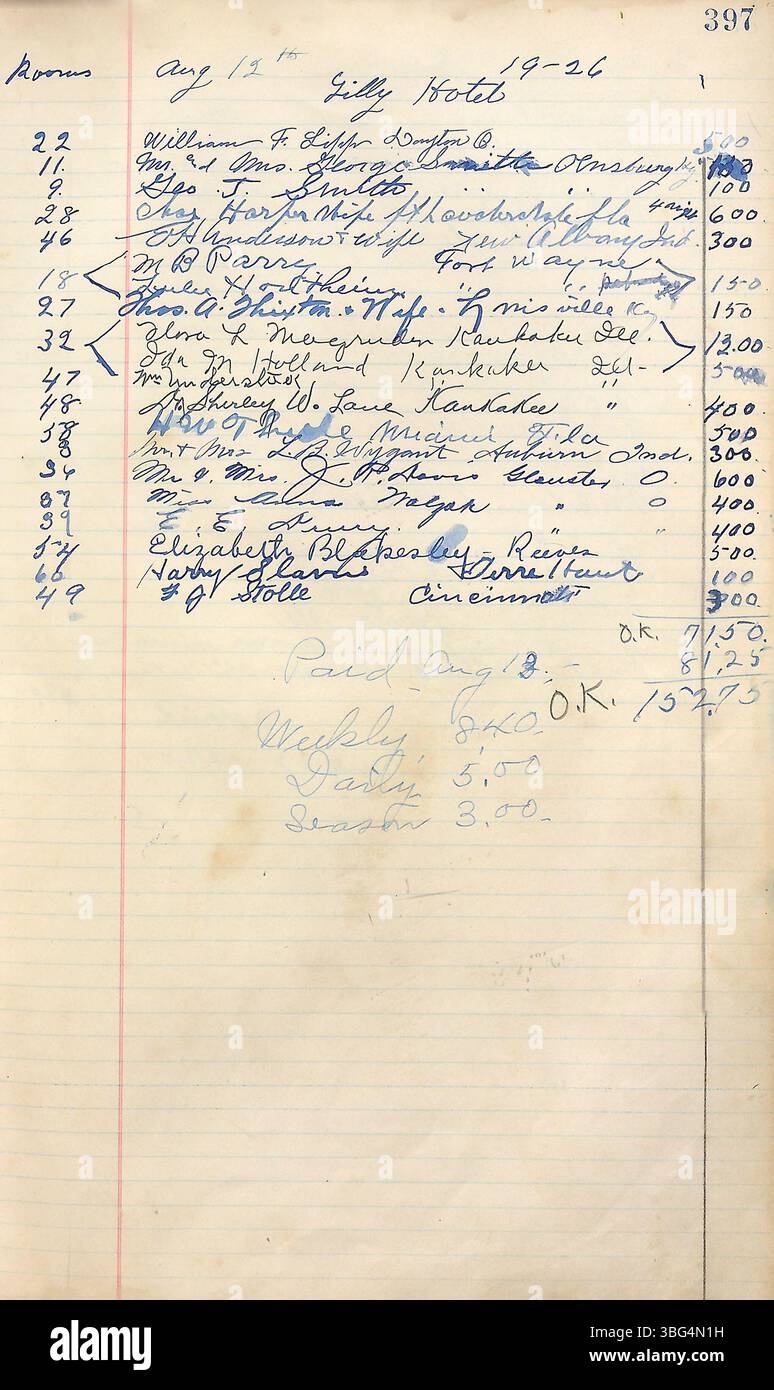 397
Rooms Aug 12th 19-26
Gilly Hotel
22 William F. Lipp Dayton O. 500
11. Mr. and Mrs. George Smith Ky
9. Geo T. Smith " " 100
28 Chas Harper Wife ft Lauderdale fla 4 nights 600
46 Anderson & wife New Albany Ind. 300
M B Parry Fort Wayne
18 " " 150
27 Thos. A. Thixton & Wife - Ky 150
Flora L Magruder Kankakee Ill.
32 12.00
Ida M Holland Kankakee Ill-
47 Wm 500
48 Shirley W. Lane Kankakee " 400
58 H W Miami Fla 500
8 Mr. & Mrs L. B. Wygant Auburn Ind. 300
36 Mr. & Mrs. J. P. Davis Glouster O. 600
37 Miss Anna " O 400
39 E. E. " " 400
54 Elizabeth Blakesley - Reeves 500.
60 Harry Terre Haut 100
49 F J Stolle Cincinnati 300.
O.K. 71.50.
81.25
Paid Aug 13.-
O.K. 152.75
Weekly 8.40.
Daily 5.00
Season 3.00.-
alamy
alamy
Image ID: 3BG4N1H
www.alamy.com